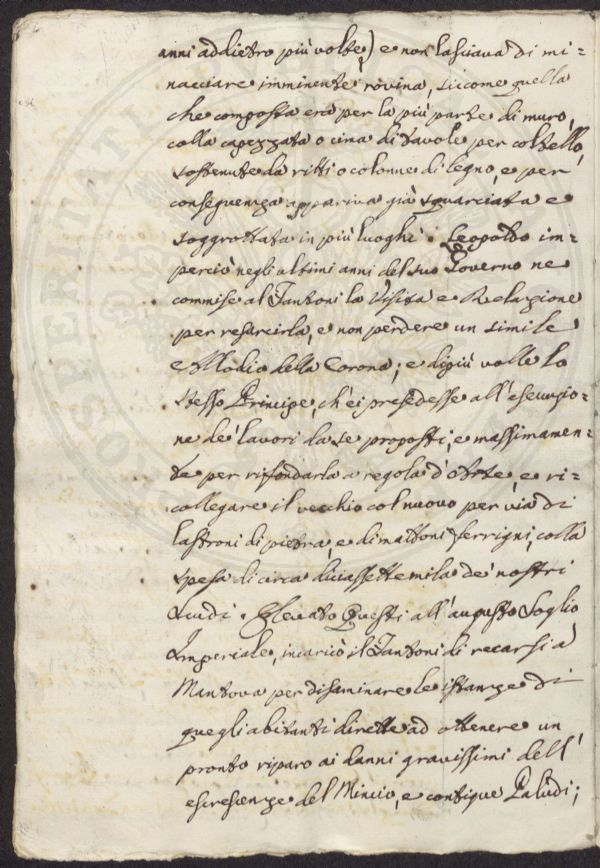 anni addietro più volte) e non lasciava di mi=
nacciare imminente rovina, siccome quella
che composta era per la più parte di muro,
colla capezzata o cima di tavole per coltello,
sostenute da ritti o colonne di legno, e per
conseguenza appariva già squarciata e
soggrottata in più luoghi. Leopoldo im=
perciò negli ultimi anni del suo Governo ne
commise al Fantoni la Visita e Relazione
per resarcirla, e non perdere un simile
Allodio della Corona; e dipiù volle lo
stesso Principe, ch'ei presedesse all'esecuzio=
ne de' lavori da se proposti, e massimamen=
te per rifondarla a regola d'Arte, e ri=
collegare il vecchio col nuovo per via di
lastroni di pietra, e di mattoni ferrigni, colla
spesa di circa diciassettemila de' nostri
scudi. Elevato Questi all'augusto Soglio
Imperiale, incaricò il Fantoni di recarsi a
Mantova per disaminare le istanze di
quegli abitanti dirette ad ottenere un
pronto riparo ai danni gravissimi dell'
escrescenze del Mincio, e contigue Paludi;
PROSPERITATI